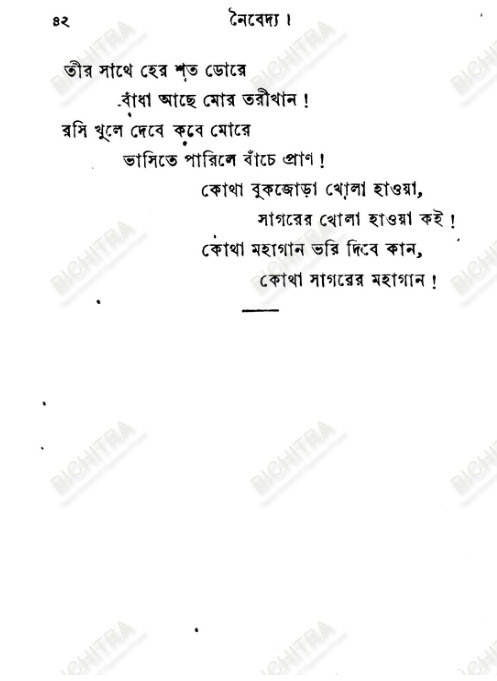 ৪২ নৈবেদ্য ।
তীর সাথে হের শত ডোরে
বাঁধা আছে মোর তরীখান !
রসি খুলে দেবে কবে মোরে
ভাসিতে পারিলে বাঁচে প্রাণ !
কোথা বুকজোড়া খোলা হাওয়া,
সাগরের খোলা হাওয়া কই !
কোথা মহাগান ভরি দিবে কান,
কোথা সাগরের মহাগান !
BICHITRA
BICHITRA
BICHITRA
BICHITRA
BICHITRA
BICHITRA
BICHITRA
BICHITRA
BICHITRA
BICHITRA
BICHITRA
BICHITRA